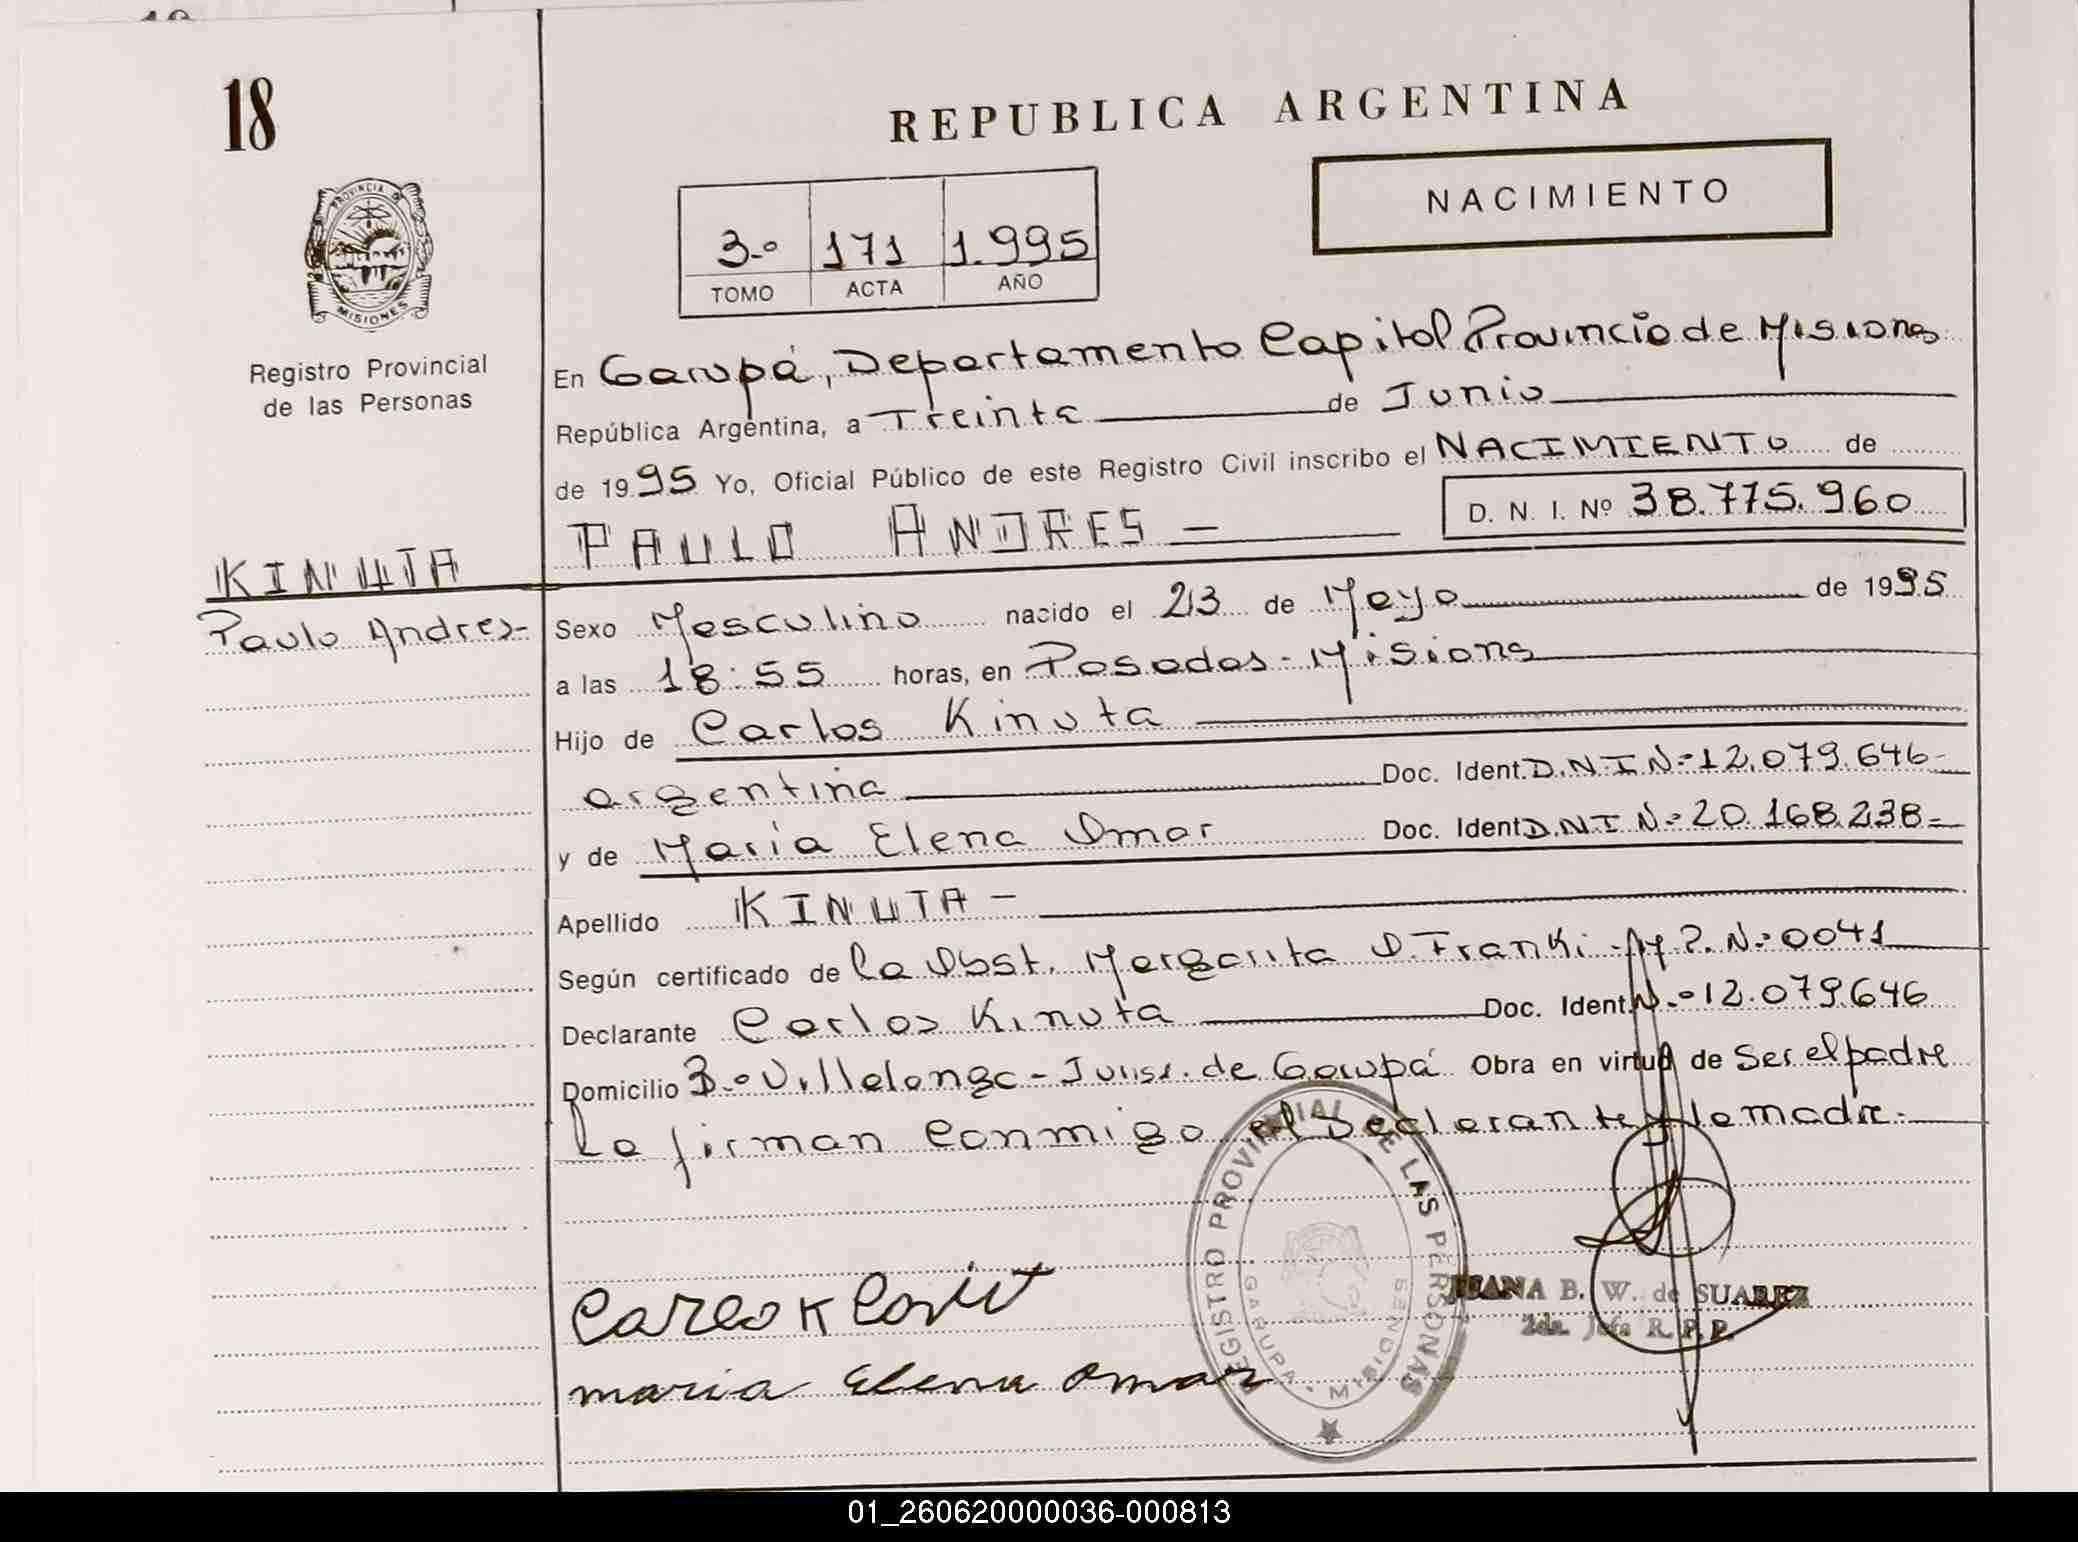 18
REPUBLICA ARGENTINA
NACIMIENTO
3.º 171 1.995
TOMO ACTA AÑO
PROVINCIA DE MISIONES
Registro Provincial
de las Personas
En Garupá, Departamento Capital Provincia de Misiones
República Argentina, a Treinta de Junio
de 1995 Yo, Oficial Público de este Registro Civil inscribo el NACIMIENTO de
PAULO ANDRES - D. N. I. Nº 38.775.960
KINUTA
Paulo Andres-
Sexo Masculino nacido el 23 de Mayo de 1995
a las 18:55 horas, en Posadas - Misiones
Hijo de Carlos Kinuta
argentina Doc. Ident. D.N.I Nº 12.079.646-
y de Maria Elena Omar Doc. Ident D.N.I Nº 20.168.238=
Apellido KINUTA -
Según certificado de la Obst. Margarita O. Franki - M.P. Nº 0041
Declarante Carlos Kinuta Doc. Ident. Nº 12.079.646
Domicilio Bº Villalonga - Juris. de Garupá Obra en virtud de Ser el padre
La firman conmigo el Declarante y la madre.-
REGISTRO PROVINCIAL DE LAS PERSONAS
GARUPA - MISIONES
JUANA B. W. de SUAREZ
2da. Jefa R. P. P.
maria Elena Omar
01_260620000036-000813